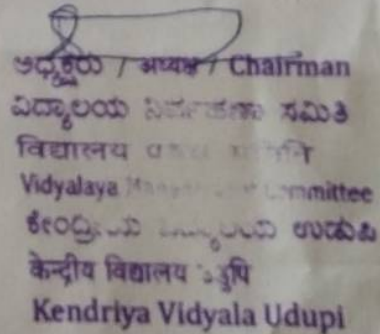 ಅಧ್ಯಕ್ಷರು / अध्यक्ष / Chairman
ವಿದ್ಯಾಲಯ ನಿರ್ವಹಣಾ ಸಮಿತಿ
विद्यालय
Vidyalaya Committee
ಕೇಂದ್ರೀಯ ಉಡುಪಿ
केन्द्रीय विद्यालय
Kendriya Vidyala Udupi